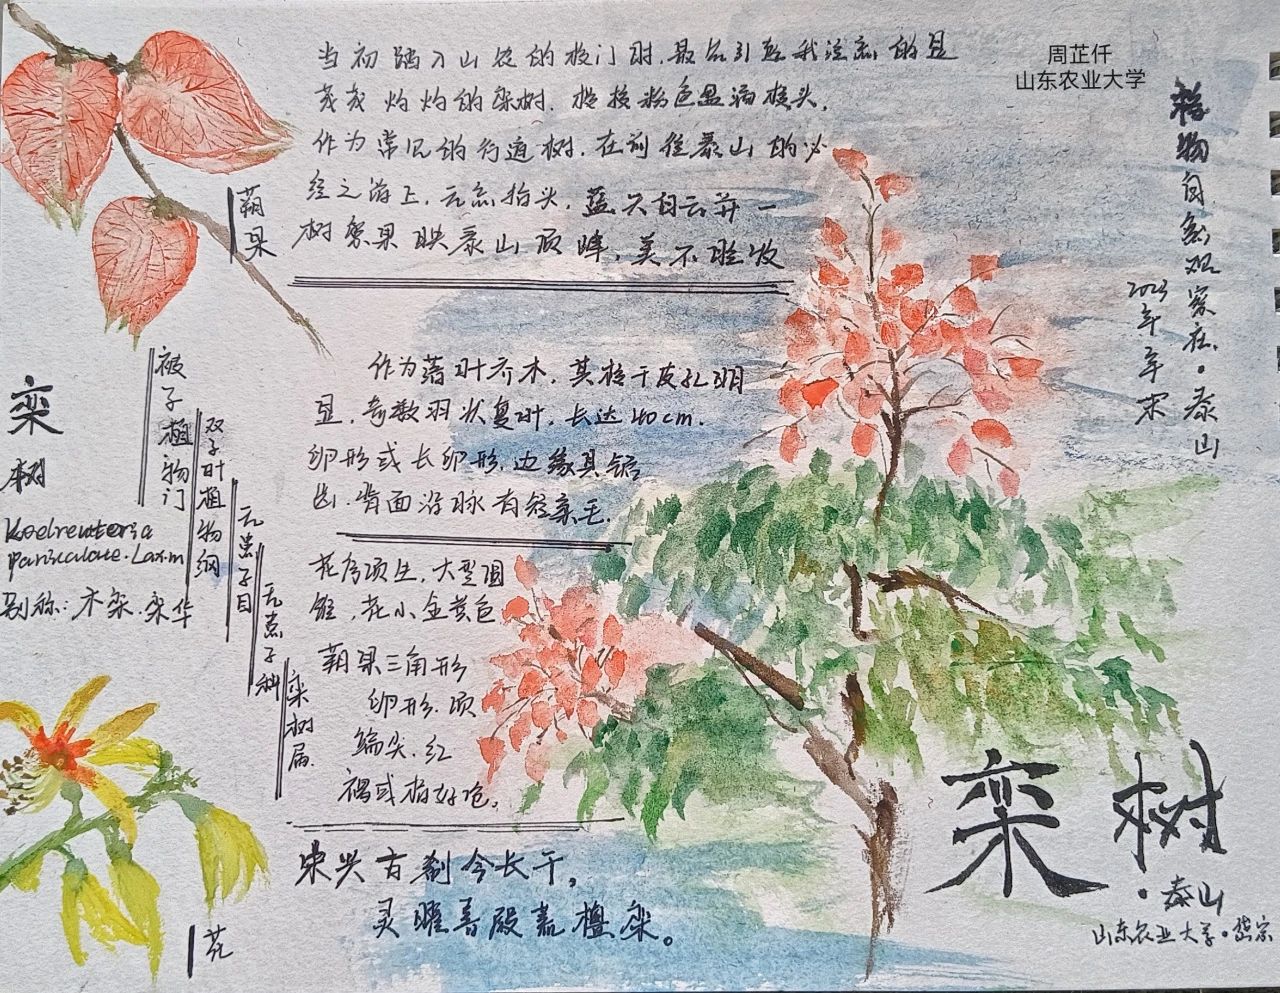 当初踏入山农的校门时,最先引起我注意的是
灼灼的栾树.枝按粉色盈满枝头.
作为常见的行道树.在前往泰山的必
经之路上,无意抬头,蓝天白云并一
树繁果映泰山顶峰,美不胜收
蒴果
周芷仟
山东农业大学
植物自然观察在·泰山
2023年年末
栾树
Koelreuteria
paniculata.Laxm
别称:木栾.栾华
被子植物门
双子叶植物纲
无患子目
无患子科
栾树属.
作为落叶乔木,其枝干皮孔明
显,奇数羽状复叶,长达40cm.
卵形或长卵形.边缘具锯
齿.背面沿脉有短柔毛.
花序顶生,大型圆
锥,花小金黄色
蒴果三角形
卵形.顶
端尖.红
褐或
宋兴古刹今长干,
灵曜寿殿嘉檀栾。
花
栾树
·泰山
山东农业大学·岱宗